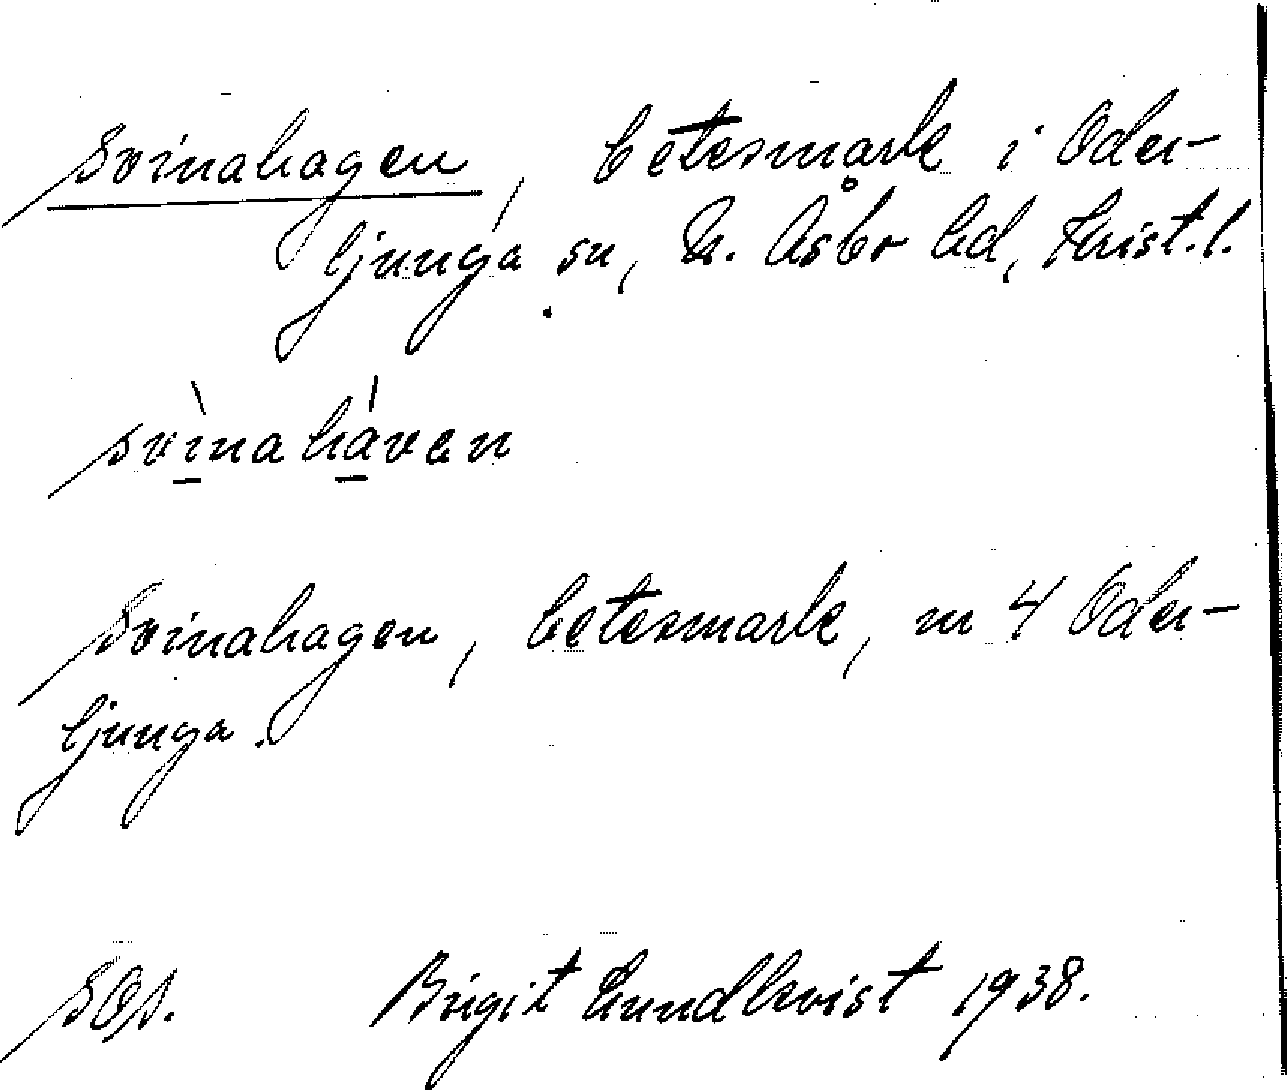 Svinahagen, betesmark i Oder-
ljunga sn, N. Åsbo hd, Krist. l.
svìnahávan
Svinahagen, betesmark, nr 4 Oder-
ljunga.
Birgit Lundkvist 1938.